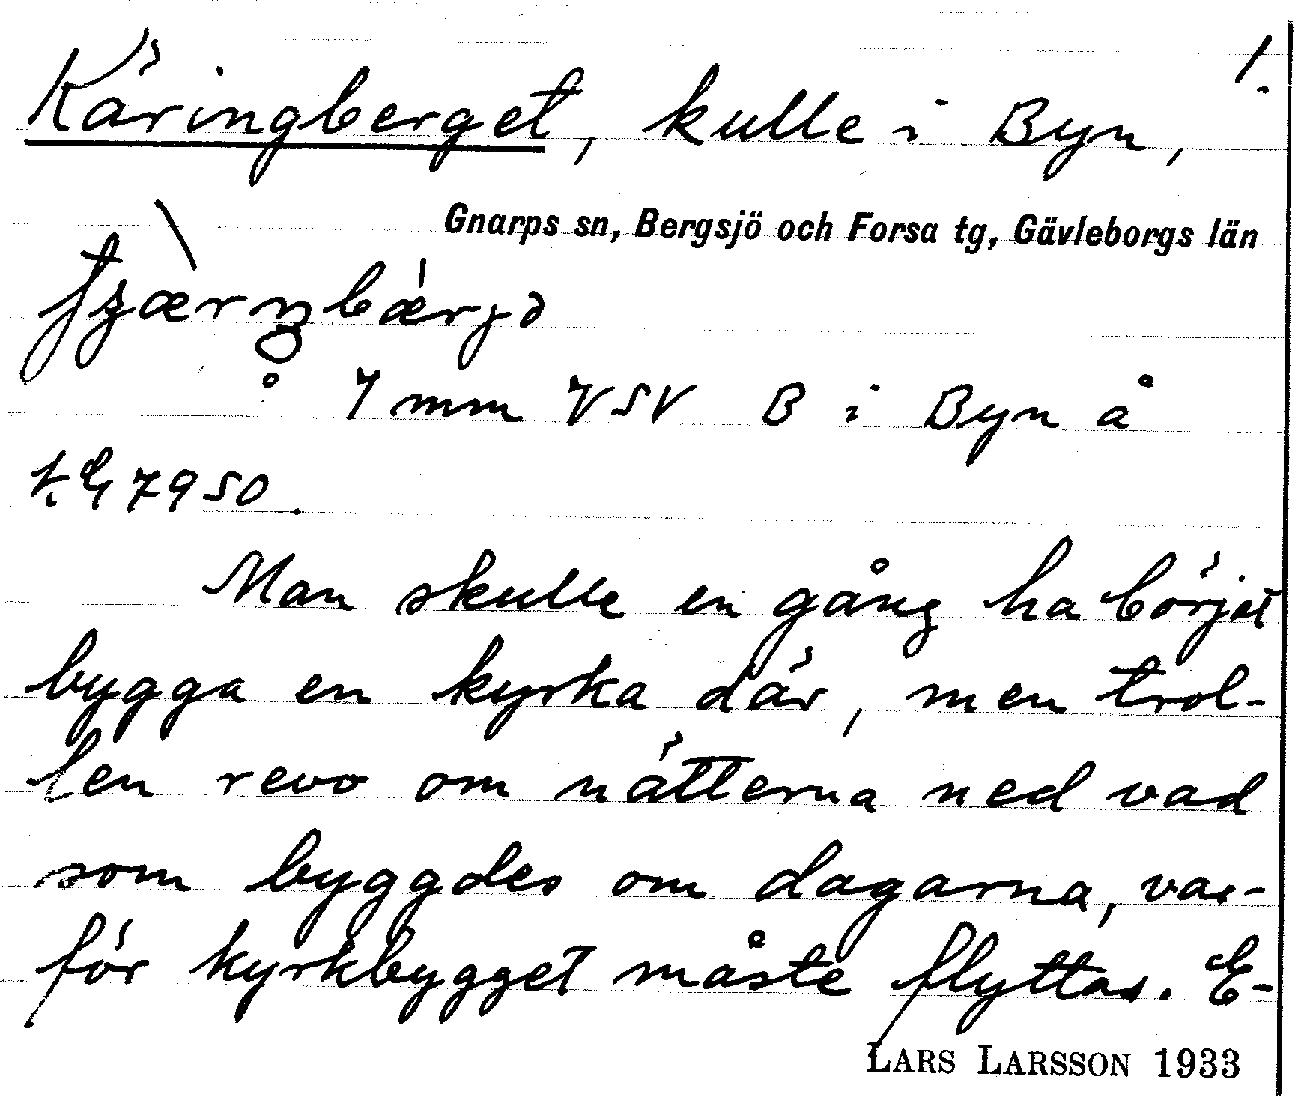 1.
Käringberget, kulle i Byn,
Gnarps sn, Bergsjö och Forsa tg, Gävleborgs län
å 7 mm VSV B i Byn å
7950.
Man skulle en gång ha börjat
bygga en kyrka där, men trol-
len revo om nätterna ned vad
som byggdes om dagarna, var-
för kyrkbygget måste flyttas. E-
LARS LARSSON 1933